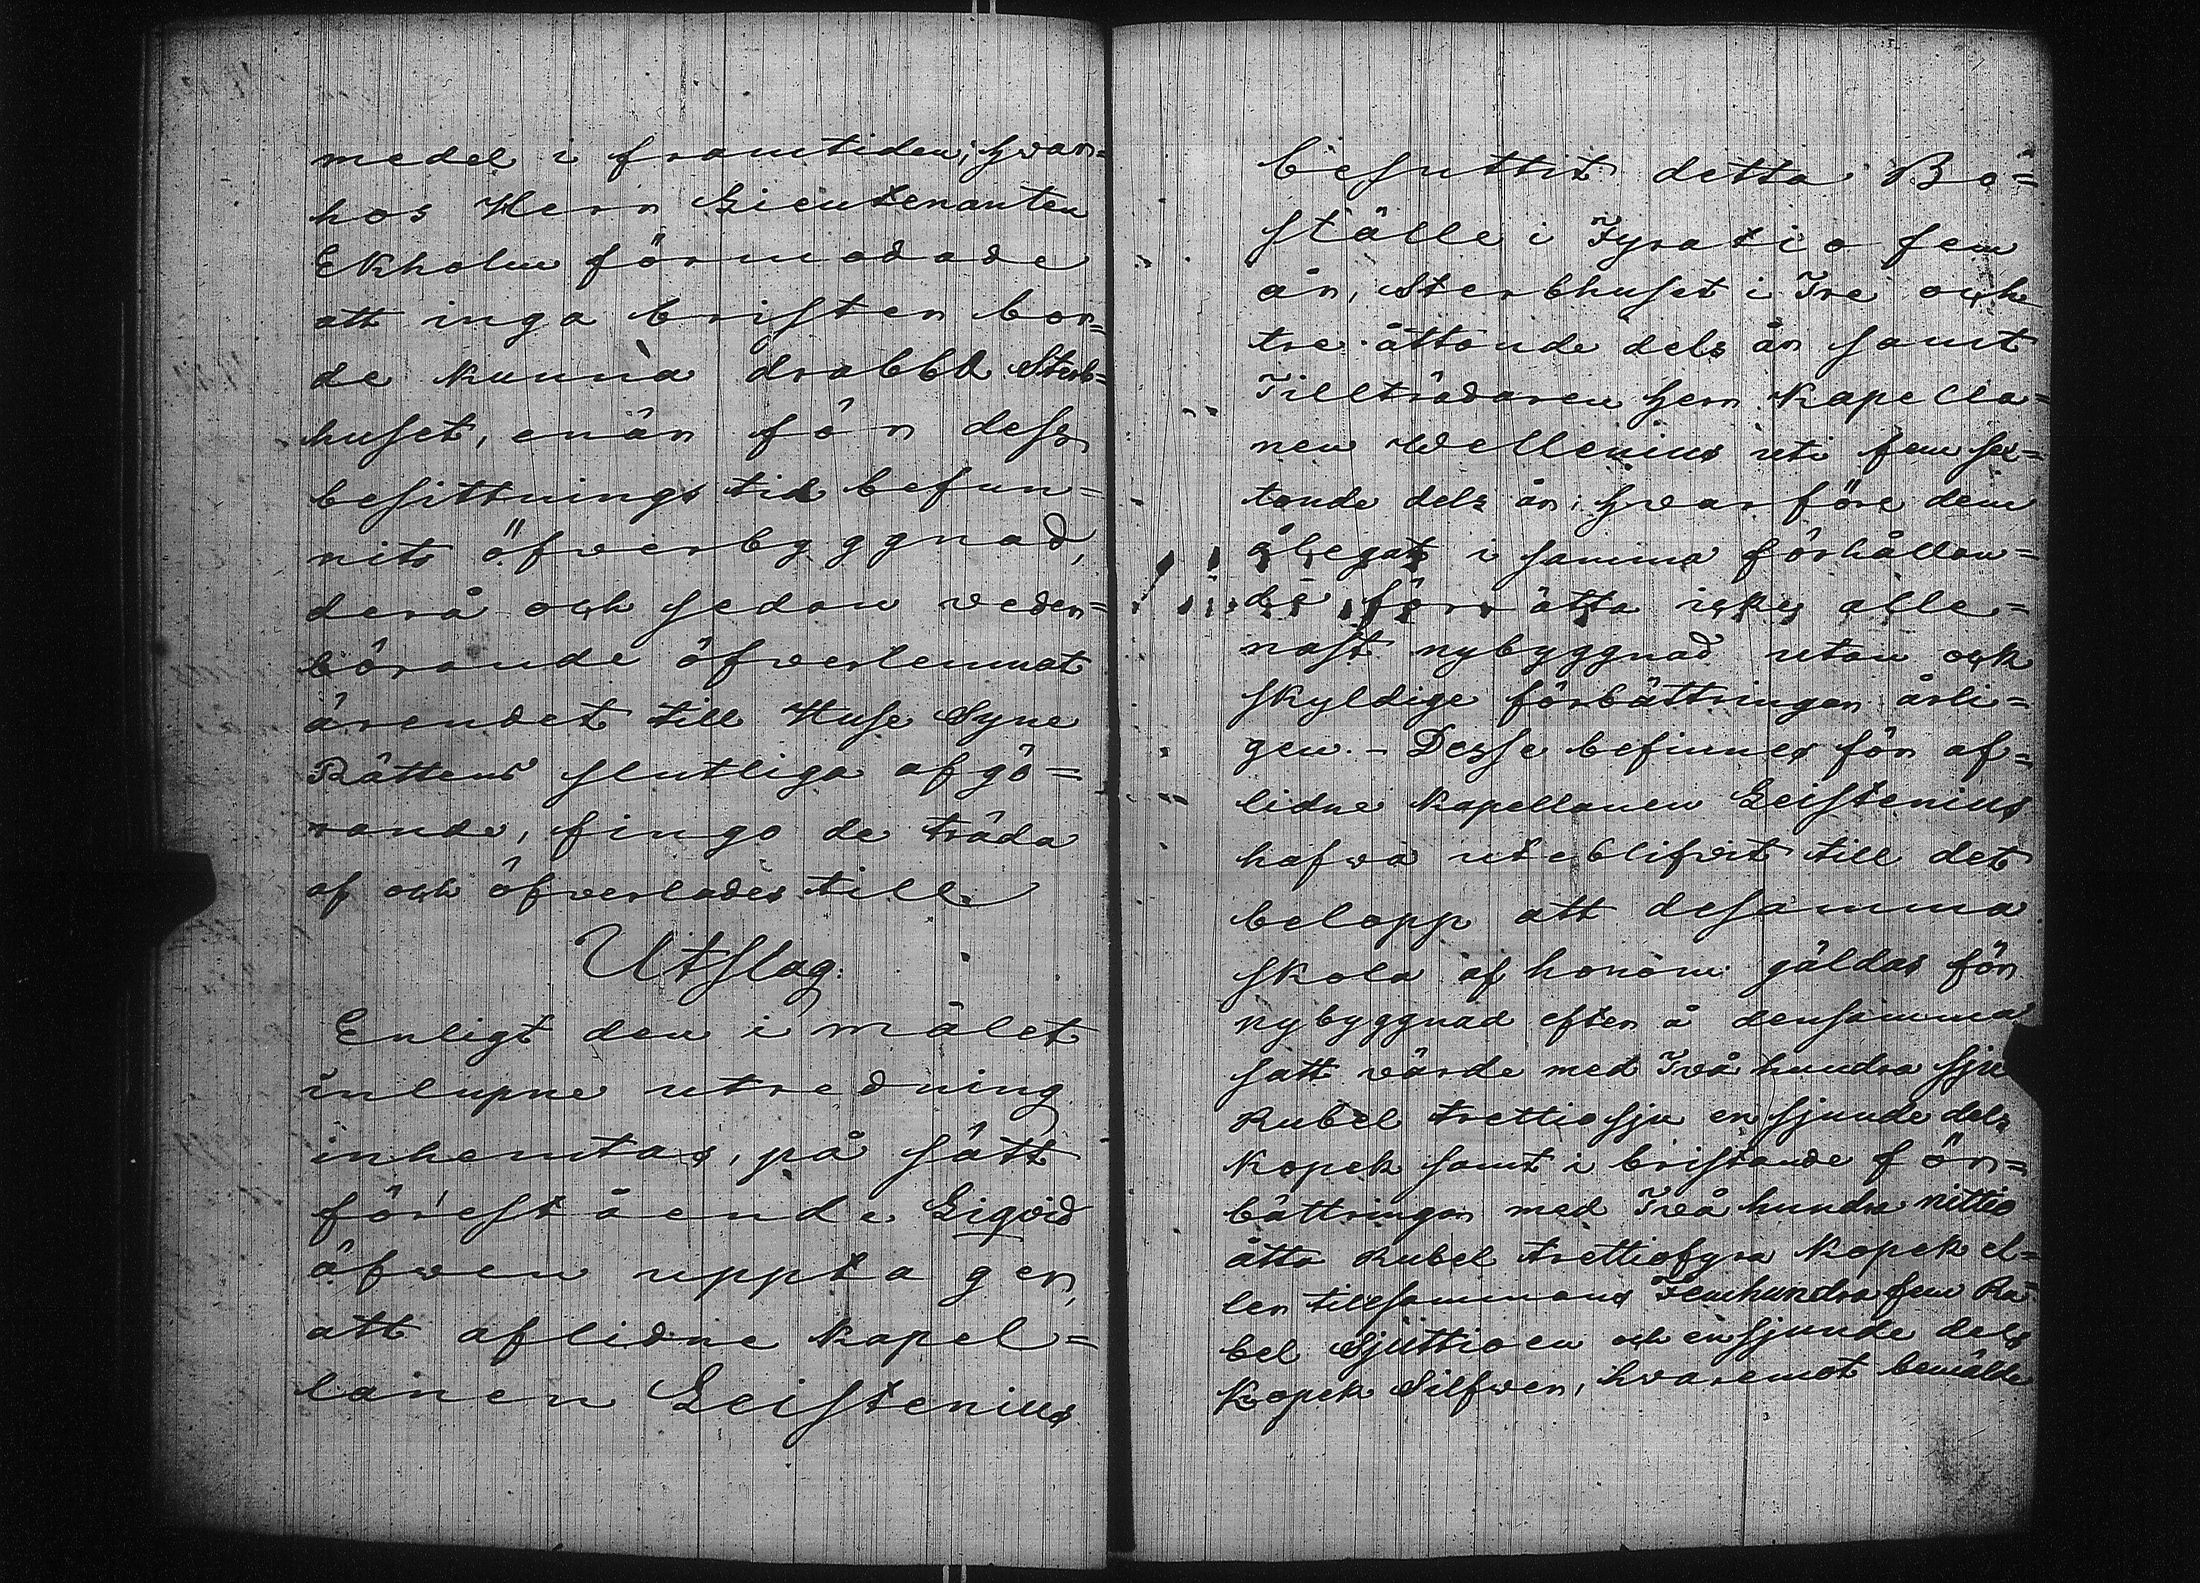 medel i framtiden; hvar=
hos Herr Lieutenanten
Ekholm förmodade
att inga brister bor=
de kunna drabba Sterb=
huset, enär för dess
besittnings tid befun=
nits öfverbyggnad,
derå och sedan veder=
börande öfverlemnat
ärendet till Huse Syne
Rättens slutliga afgö=
rande, fingo de träda
af och öfverlades till
Utslag.
Enligt den i målet
inlupne utredning
inhemtas, på sätt
förestående Liqvid
äfven upptager,
att aflidne Kapel=
lanen Leistenius
besuttit detta Bo=
ställe i Fyratio fem
år, Sterbhuset i Tre och
tre åttonde dels år samt
Tillträdaren Herr Kapella=
nen Wellenius uti fem sex=
tonde dels år; hvarföre dem
ålegat i samma förhållan=
de förrätta icke alle=
nast nybyggnad utan ock
skyldige förbättringar årli=
gen. – Desse befinnes för af=
lidne Kapellanen Leistenius
hafva uteblifvit till det
belopp att desamma
skola af honom gäldas för
nybyggnad efter å densamma
satt värde med Två hundra sju
Rubel trettiosju en sjunde dels
Kopek samt i bristande för=
bättringar med Två hundra nittio
åtta Rubel trettiofyra Kopek el=
ler tillsammans Femhundra fem Ru=
bel Sjuttioen och en sjunde dels
Kopek Silfver, hvaremot bemälde